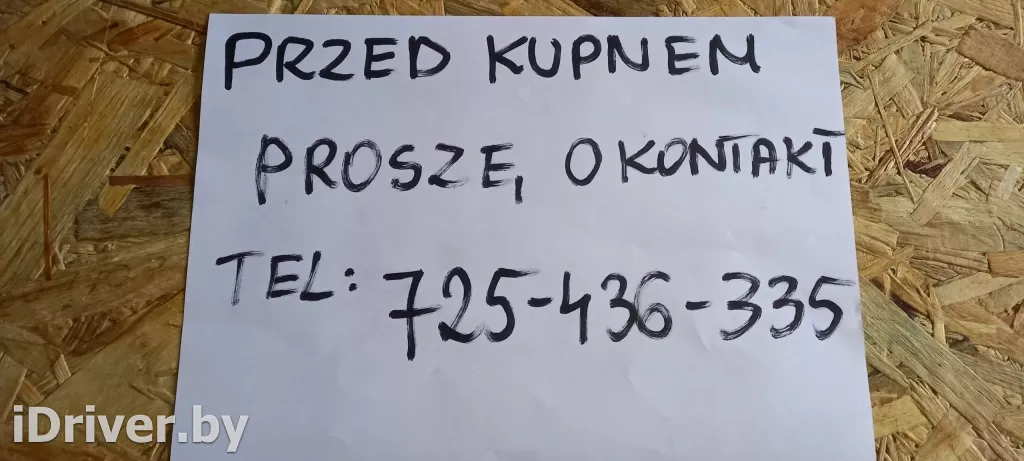 PRZED KUPNEM
PROSZĘ O KONTAKT
TEL: 725-436-335
iDriver.by